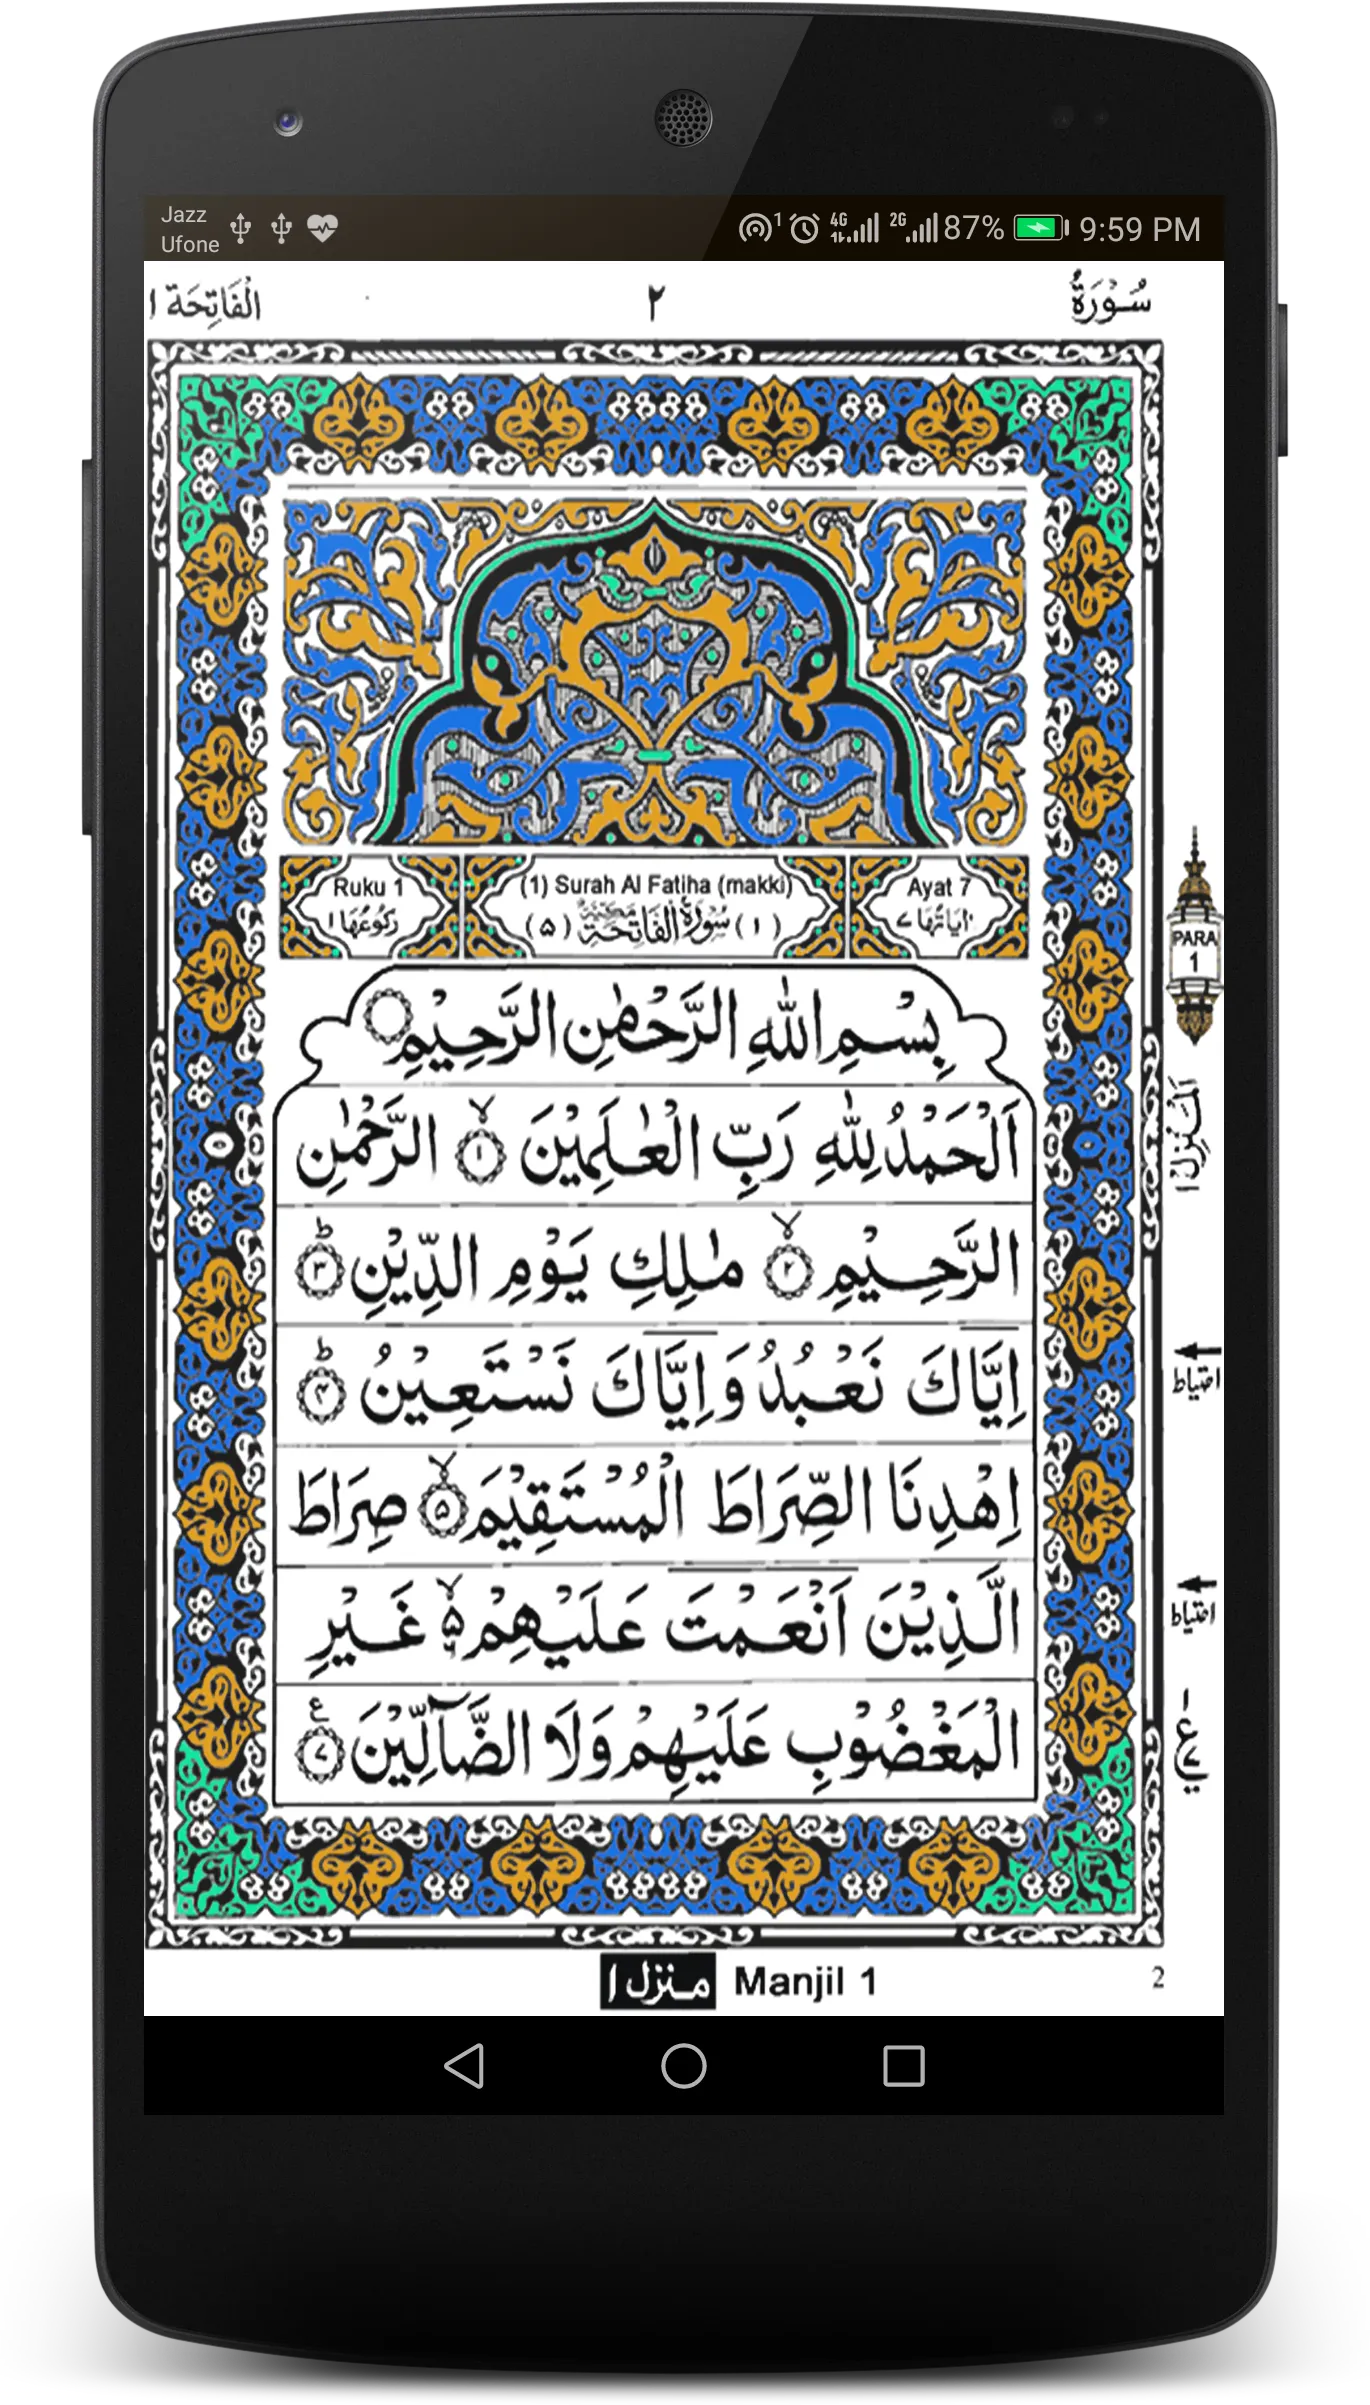 Jazz
Ufone
1 4G 2G 87% 9:59 PM
سُوْرَةُ ٢ الْفَاتِحَة ١
Ruku 1 (1) Surah Al Fatiha (makki) Ayat 7
اٰيَاتُهَا ٧ (١) سُوْرَةُ الْفَاتِحَةِ مَكِّيَّةٌ (٥) رُكُوْعُهَا ١
بِسْمِ اللّٰهِ الرَّحْمٰنِ الرَّحِيْمِ
اَلْحَمْدُ لِلّٰهِ رَبِّ الْعٰلَمِيْنَ ۙ﴿١﴾ الرَّحْمٰنِ
الرَّحِيْمِ ۙ﴿٢﴾ مٰلِكِ يَوْمِ الدِّيْنِ ؕ﴿٣﴾
اِيَّاكَ نَعْبُدُ وَ اِيَّاكَ نَسْتَعِيْنُ ؕ﴿۴﴾
اِهْدِنَا الصِّرَاطَ الْمُسْتَقِيْمَ ۙ﴿۵﴾ صِرَاطَ
الَّذِيْنَ اَنْعَمْتَ عَلَيْهِمْ ۙ۵ غَيْرِ
الْمَغْضُوْبِ عَلَيْهِمْ وَلَا الضَّآلِّيْنَ ﴿٧﴾ ع
PARA
1
اَلْمَنْزِل ١
احتیاط
احتیاط
ع
منزل ١ Manjil 1 2